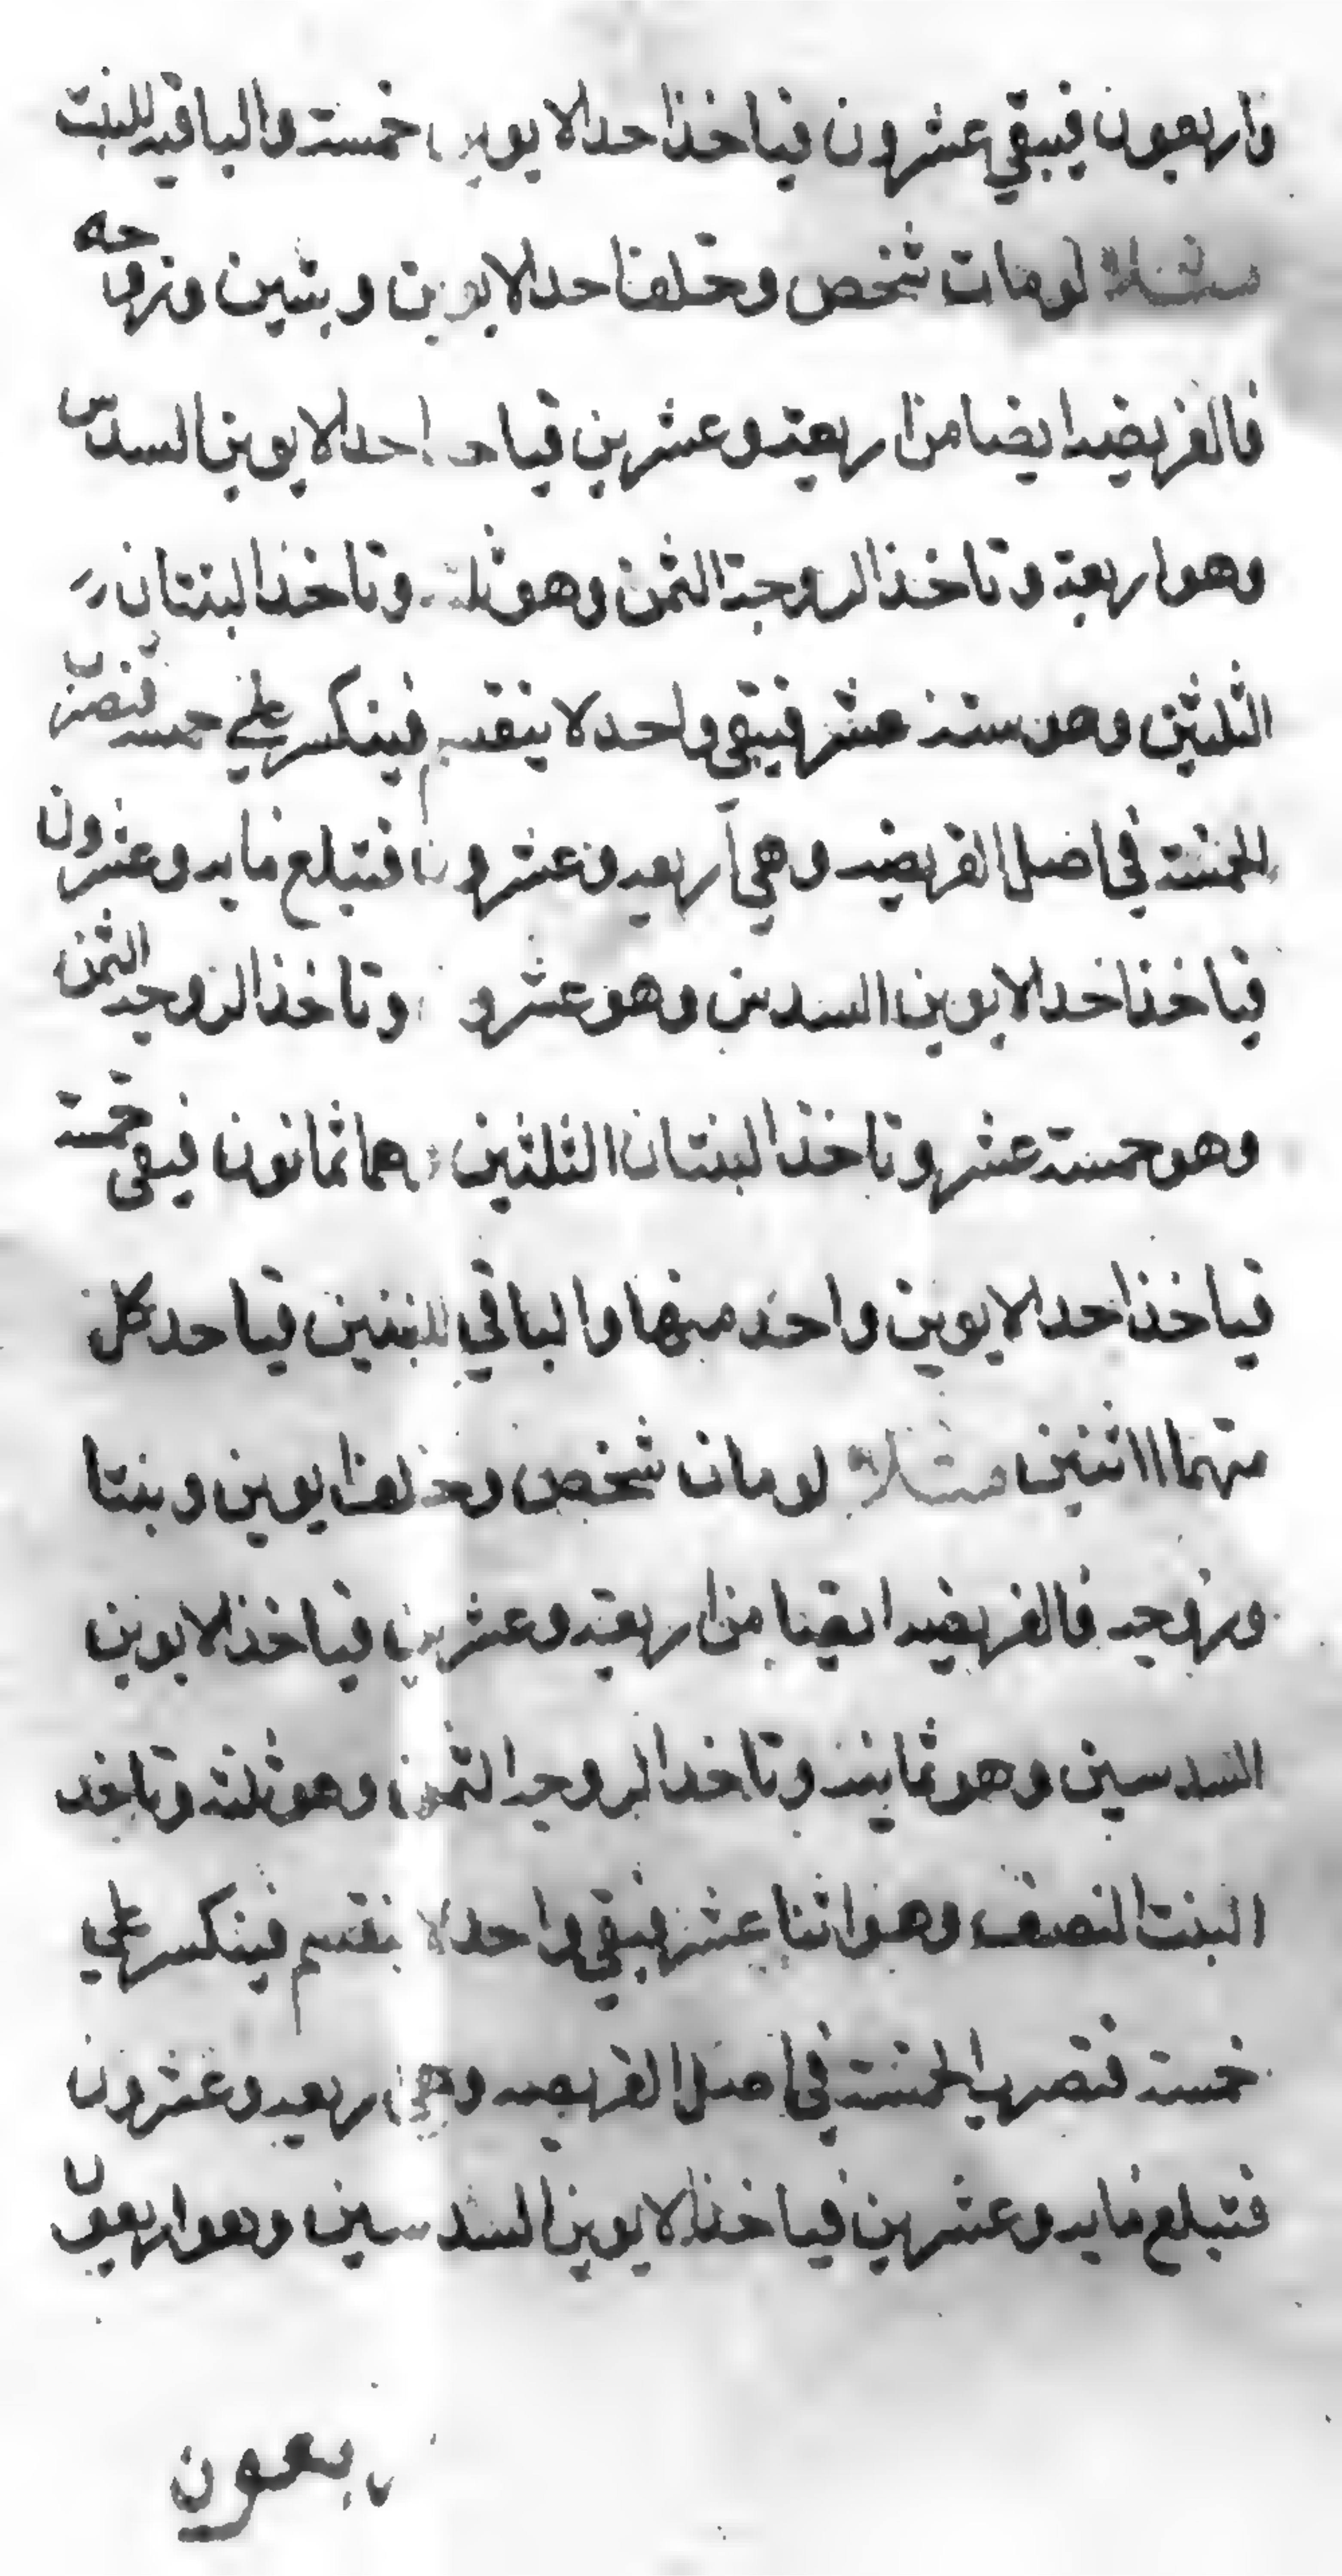 واربعون فيبقي عشرون فياخذ احد الابوين خمسة والباقيه للبنت
مثلا لومات شخص وخلف احد الابوين وبنتين وزوجه
فالفريضه ايضا من اربعة وعشرين فياخذ احد الابوين السدس
وهو اربعة وتاخذ الزوجة الثمن وهو ثلثة وتاخذ البنتان
الثلثين وهو ستة عشر فيبقي واحد لا ينقسم فينكسر علي خمسه فنضرب
الخمسة في اصل الفريضه وهي اربعه وعشرون فتبلغ مايه وعشرون
فياخذ احد الابوين السدس وهو عشرون وتاخذ الزوجه الثمن
وهو خمسة عشر وتاخذ البنتان الثلثين وهما ثمانون فيبقى خمسة
فياخذ احد الابوين واحد منها والباقي للبنتين فياخد كل
منهما اثنين مثلا لومات شخص وخلف ابوين وبنتا
وزوجه فالفريضه ايضا من اربعة وعشرين فياخذ الابوين
السدسين وهو ثمانية وتاخد الزوجه الثمن وهو ثلثة وتاخد
البنت النصف وهو اثنا عشر فيبقي واحد لا ينقسم فينكسر علي
خمسة فنضرب الخمسة في اصل الفريضه وهي اربعه وعشرون
فتبلغ مايه وعشرين فياخذ الابوين السدسين وهو اربعون
ربعون